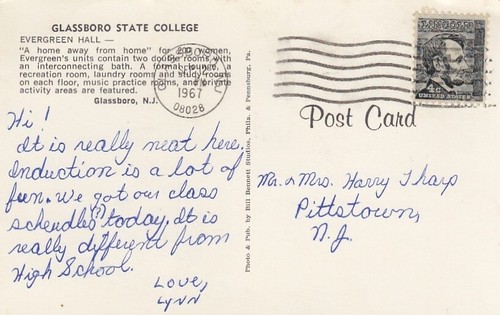 GLASSBORO STATE COLLEGE
EVERGREEN HALL —
"A home away from home" for 200 women,
Evergreen's units contain two double rooms with
an interconnecting bath. A formal lounge, a
recreation room, laundry rooms and study rooms
on each floor, music practice rooms, and private
activity areas are featured.
Glassboro, N.J.
1967
08028
4¢
UNITED STATES
Post Card
Hi!
It is really neat here.
Induction is a lot of
fun. We got our class
schendles today. It is
really different from
High School.
Love,
Lynn
Photo & Pub. by Bill Bennett Studios, Phila. & Pennsburg, Pa.
Mr. & Mrs. Harry Tharp
Pittstown,
N.J.